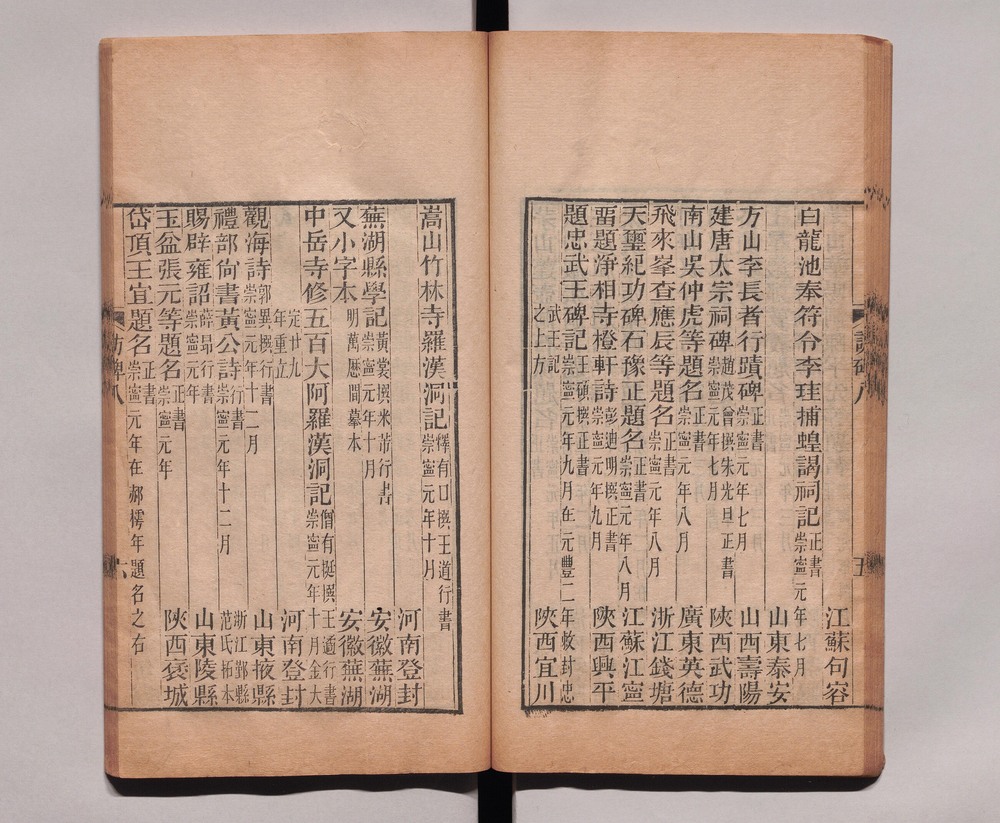 江蘇句容
白龍池奉符令李珪捕蝗謁祠記 正書 崇寧元年七月 山東泰安
方山李長者行蹟碑 正書 崇寧元年七月 山西壽陽
建唐太宗祠碑 趙茂曾撰朱光旦正書 崇寧元年七月 陝西武功
南山吳仲虎等題名 正書 崇寧元年八月 廣東英德
飛來峯查應辰等題名 正書 崇寧元年八月 浙江錢塘
天璽紀功碑石豫正題名 正書 崇寧元年八月 江蘇江寧
題淨相寺橙軒詩 彭迪明撰正書 崇寧元年九月 陝西興平
題忠武王碑記 王碩撰正書 崇寧元年九月在元豐二年敕封忠武王記之上方 陝西宜川
訪碑八
五
嵩山竹林寺羅漢洞記 釋有口撰王道行書 崇寧元年十月 河南登封
蕪湖縣學記 黃裳撰米芾行書 崇寧元年十月 安徽蕪湖
又小字本 明萬厯間摹本 安徽蕪湖
中岳寺修五百大阿羅漢洞記 僧有挺撰王適行書 崇寧元年十月金大定廿九年重立 河南登封
觀海詩 郭異撰行書 崇寧元年十二月 山東掖縣
禮部尙書黃公詩 行書 崇寧元年十二月 浙江鄞縣范氏拓本
賜辟雍詔 薛昂行書 崇寧元年 山東陵縣
玉盆張元等題名 正書 崇寧元年 陝西褒城
岱頂王宜題名 正書 崇寧元年在郝㯶年題名之右
訪碑八
六